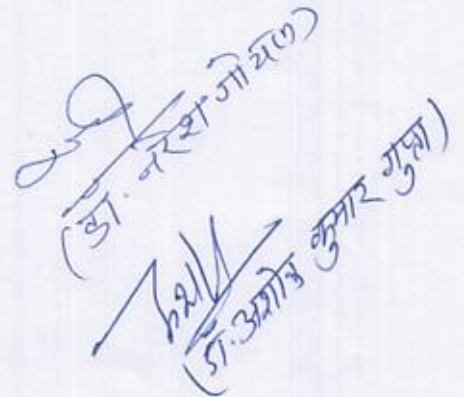 (डॉ. नरेश गोयल)
(डॉ. अशोक कुमार गुप्ता)